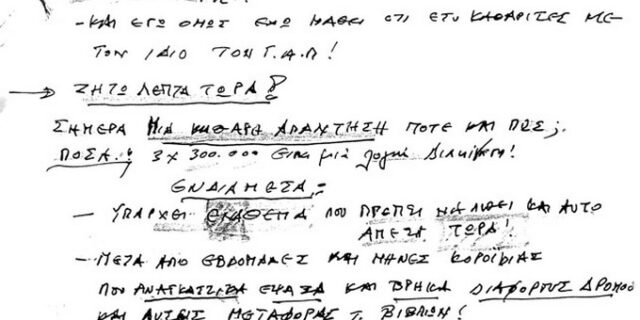 - ΚΑΙ ΕΓΩ ΟΜΩΣ ΕΧΩ ΜΑΘΕΙ ΟΤΙ ΕΤΣΙ ΚΑΘΑΡΙΣΕΣ ΜΕ
ΤΟΝ ΙΔΙΟ ΤΟΝ Γ.Α.Π!
→ ΖΗΤΩ ΛΕΠΤΑ ΤΩΡΑ!
ΣΗΜΕΡΑ ΜΙΑ ΚΑΘΑΡΗ ΑΠΑΝΤΗΣΗ ΠΟΤΕ ΚΑΙ ΠΩΣ;
ΠΟΣΑ! 3 x 300.000 Είναι μιά λογική Διακίνηση!
ΕΝΔΙΑΜΕΣΑ:
- ΥΠΑΡΧΕΙ ΕΚΑΘΕΜΑ ΠΟΥ ΠΡΕΠΕΙ ΝΑ ΛΥΘΕΙ ΚΑΙ ΑΥΤΟ
ΑΜΕΣΑ ΤΩΡΑ!
- ΜΕΤΑ ΑΠΟ ΕΒΔΟΜΑΔΕΣ ΚΑΙ ΜΗΝΕΣ ΚΟΡΟΙΔΙΑΣ
ΠΟΥ ΑΝΑΓΚΑΣΤΗΚΑ ΕΨΑΞΑ ΚΑΙ ΒΡΗΚΑ ΔΙΑΦΟΡΟΥΣ ΔΡΟΜΟΥ
ΚΑΙ ΑΥΤΟΥΣ ΜΕΤΑΦΟΡΑΣ Τ. ΒΙΒΛΙΩΝ!